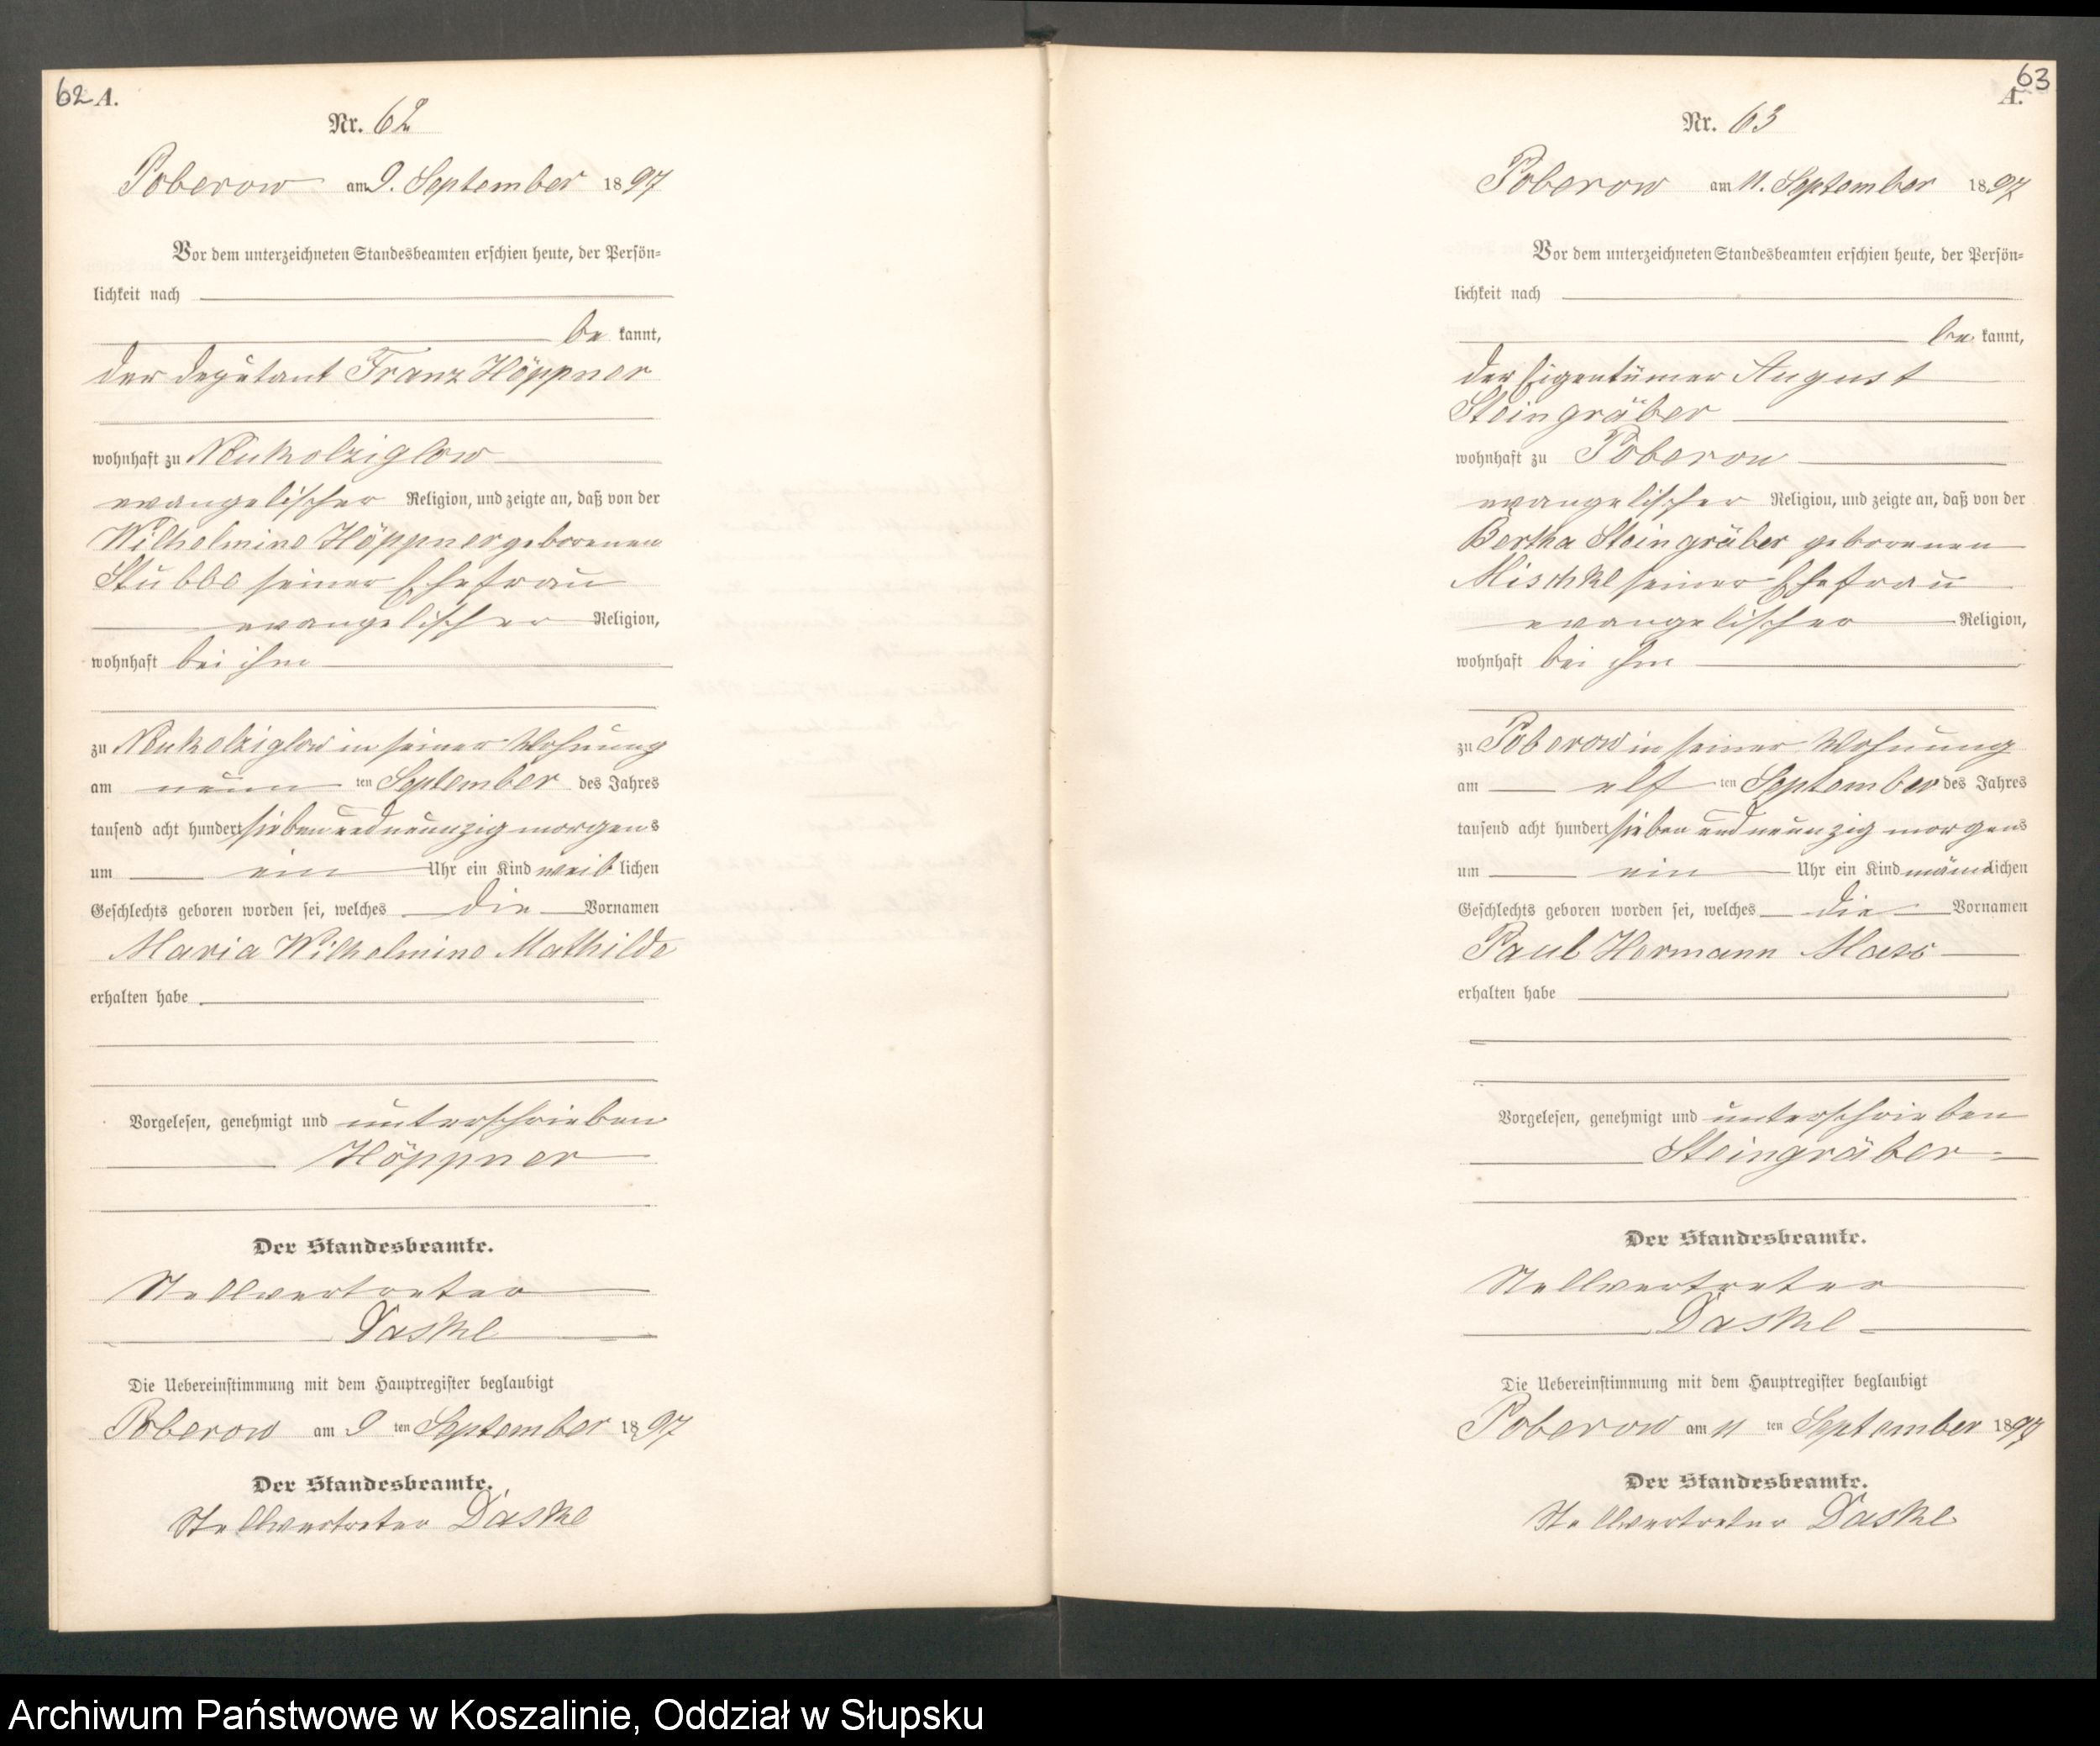 62 A.
Nr. 62
Poberow am 9. September 1897
Vor dem unterzeichneten Standesbeamten erschien heute, der Persön-
lichkeit nach
be kannt,
der Deputant Franz Höppner
wohnhaft zu Neukolziglow
evangelischer Religion, und zeigte an, daß von der
Wilhelmine Höppner geborenen
Stubbe seiner Ehefrau
evangelischer Religion,
wohnhaft bei ihm
zu Neukolziglow in seiner Wohnung
am neun ten September des Jahres
tausend acht hundert sieben und neunzig morgens
um ein Uhr ein Kind weib lichen
Geschlechts geboren worden sei, welches die Vornamen
Maria Wilhelmine Mathilde
erhalten habe
Vorgelesen, genehmigt und unterschrieben
Höppner
Der Standesbeamte.
Stellvertreter
Daske
Die Uebereinstimmung mit dem Hauptregister beglaubigt
Poberow am 9 ten September 1897
Der Standesbeamte.
Stellvertreter Daske
63
A.
Nr. 63
Poberow am 11. September 1897
Vor dem unterzeichneten Standesbeamten erschien heute, der Persön-
lichkeit nach
be kannt,
der Eigentümer August
Steingräber
wohnhaft zu Poberow
evangelischer Religion, und zeigte an, daß von der
Bertha Steingräber geborenen
Mischke seiner Ehefrau
evangelischer Religion,
wohnhaft bei ihm
zu Poberow in seiner Wohnung
am elf ten September des Jahres
tausend acht hundert sieben und neunzig morgens
um ein Uhr ein Kind männlichen
Geschlechts geboren worden sei, welches die Vornamen
Paul Hermann
erhalten habe
Vorgelesen, genehmigt und unterschrieben
Steingräber
Der Standesbeamte.
Stellvertreter
Daske
Die Uebereinstimmung mit dem Hauptregister beglaubigt
Poberow am 11 ten September 1897
Der Standesbeamte.
Stellvertreter Daske
Archiwum Państwowe w Koszalinie, Oddział w Słupsku